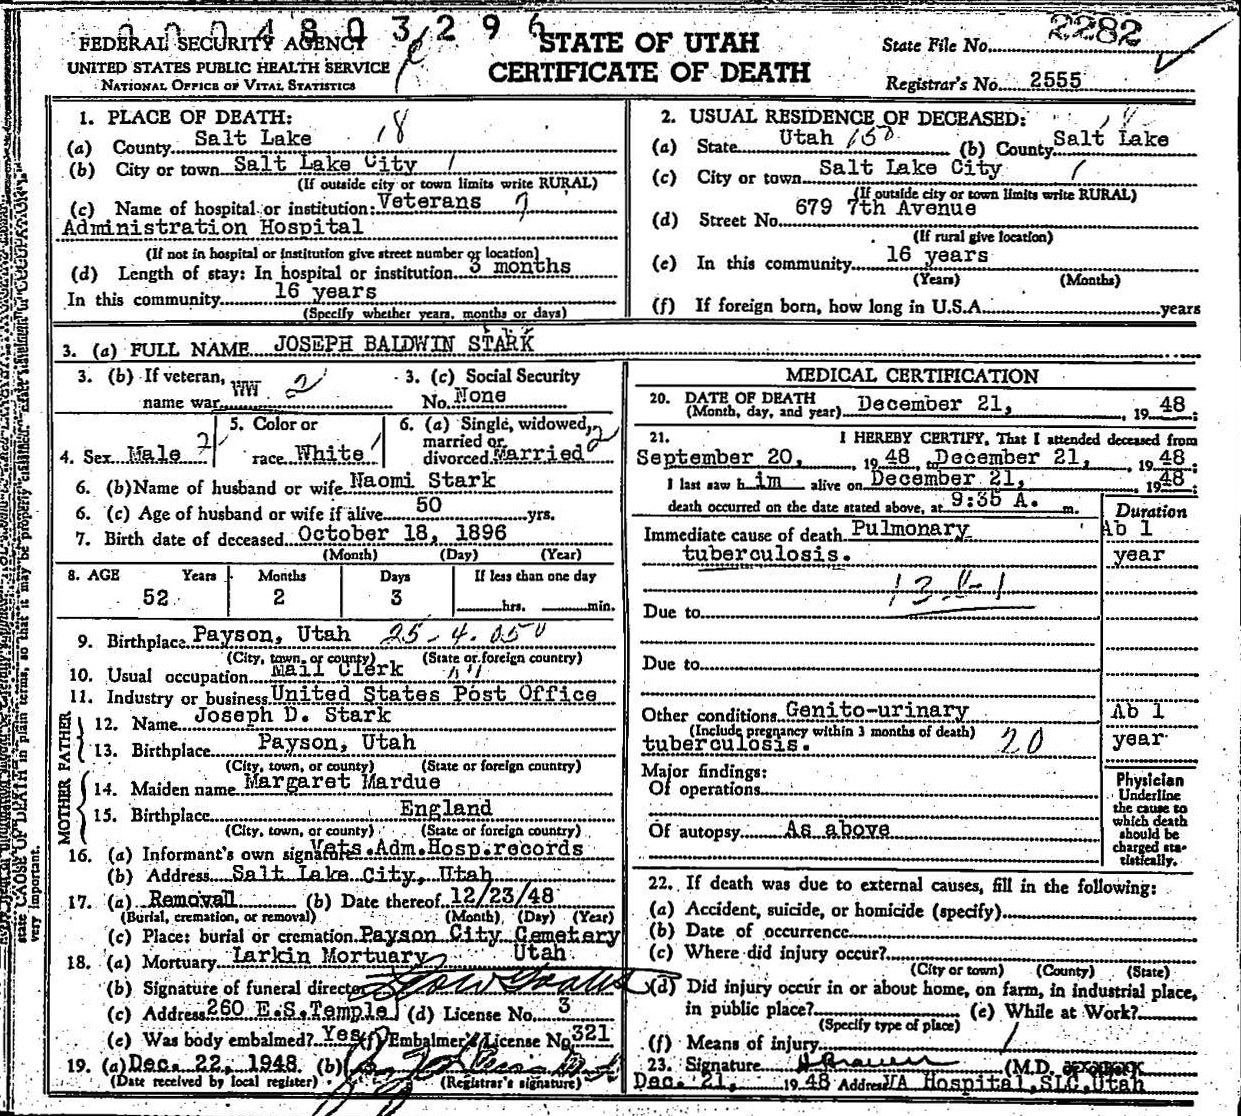 0 0 0 4 8 0 3 2 9 6
FEDERAL SECURITY AGENCY
UNITED STATES PUBLIC HEALTH SERVICE
NATIONAL OFFICE OF VITAL STATISTICS
STATE OF UTAH
CERTIFICATE OF DEATH
State File No. 2282
Registrar's No. 2555
1. PLACE OF DEATH: 18
(a) County Salt Lake
(b) City or town Salt Lake City 1
(If outside city or town limits write RURAL)
(c) Name of hospital or institution: Veterans
Administration Hospital
(If not in hospital or institution give street number or location)
(d) Length of stay: In hospital or institution 3 months
In this community 16 years
(Specify whether years, months or days)
2. USUAL RESIDENCE OF DECEASED:
(a) State Utah 150 (b) County Salt Lake
(c) City or town Salt Lake City 1
(If outside city or town limits write RURAL)
(d) Street No. 679 7th Avenue
(If rural give location)
(e) In this community 16 years
(Years) (Months)
(f) If foreign born, how long in U.S.A. years
3. (a) FULL NAME JOSEPH BALDWIN STARK
3. (b) If veteran, name war WW 2
3. (c) Social Security No. None
4. Sex Male
5. Color or race White
6. (a) Single, widowed, married or divorced Married 2
6. (b) Name of husband or wife Naomi Stark
6. (c) Age of husband or wife if alive 50 yrs.
7. Birth date of deceased October 18, 1896
(Month) (Day) (Year)
8. AGE Years Months Days If less than one day
52 2 3 hrs. min.
9. Birthplace Payson, Utah 25-4.050
(City, town, or county) (State or foreign country)
10. Usual occupation Mail Clerk
11. Industry or business United States Post Office
FATHER
12. Name Joseph D. Stark
13. Birthplace Payson, Utah
(City, town, or county) (State or foreign country)
MOTHER
14. Maiden name Margaret Mardue
15. Birthplace England
(City, town, or county) (State or foreign country)
16. (a) Informant's own signature Vets.Adm.Hosp.records
(b) Address Salt Lake City, Utah
17. (a) Removall (b) Date thereof 12/23/48
(Burial, cremation, or removal) (Month) (Day) (Year)
(c) Place: burial or cremation Payson City Cemetary
Utah
18. (a) Mortuary Larkin Mortuary
(b) Signature of funeral director
(c) Address 260 E.S.Temple (d) License No. 3
(e) Was body embalmed? Yes (f) Embalmer's License No. 321
19. (a) Dec. 22, 1948 (b)
(Date received by local register) (Registrar's signature)
MEDICAL CERTIFICATION
20. DATE OF DEATH
(Month, day, and year) December 21, 1948;
21. I HEREBY CERTIFY, That I attended deceased from
September 20, 1948, to December 21, 1948;
I last saw him alive on December 21, 1948;
death occurred on the date stated above, at 9:35 A. m.
Duration
Immediate cause of death Pulmonary Ab 1
tuberculosis. year
Due to
Due to
Other conditions Genito-urinary Ab 1
(Include pregnancy within 3 months of death)
tuberculosis. 20 year
Major findings:
Of operations
Of autopsy As above
Physician
Underline
the cause to
which death
should be
charged sta-
tistically.
22. If death was due to external causes, fill in the following:
(a) Accident, suicide, or homicide (specify)
(b) Date of occurrence
(c) Where did injury occur?
(City or town) (County) (State)
(d) Did injury occur in or about home, on farm, in industrial place,
in public place? (e) While at Work?
(Specify type of place)
(f) Means of injury
23. Signature (M.D.
Dec. 21, 1948 Address VA Hospital,SLC,Utah
state CAUSE OF DEATH in plain terms, so that it may be properly classified.
very important.